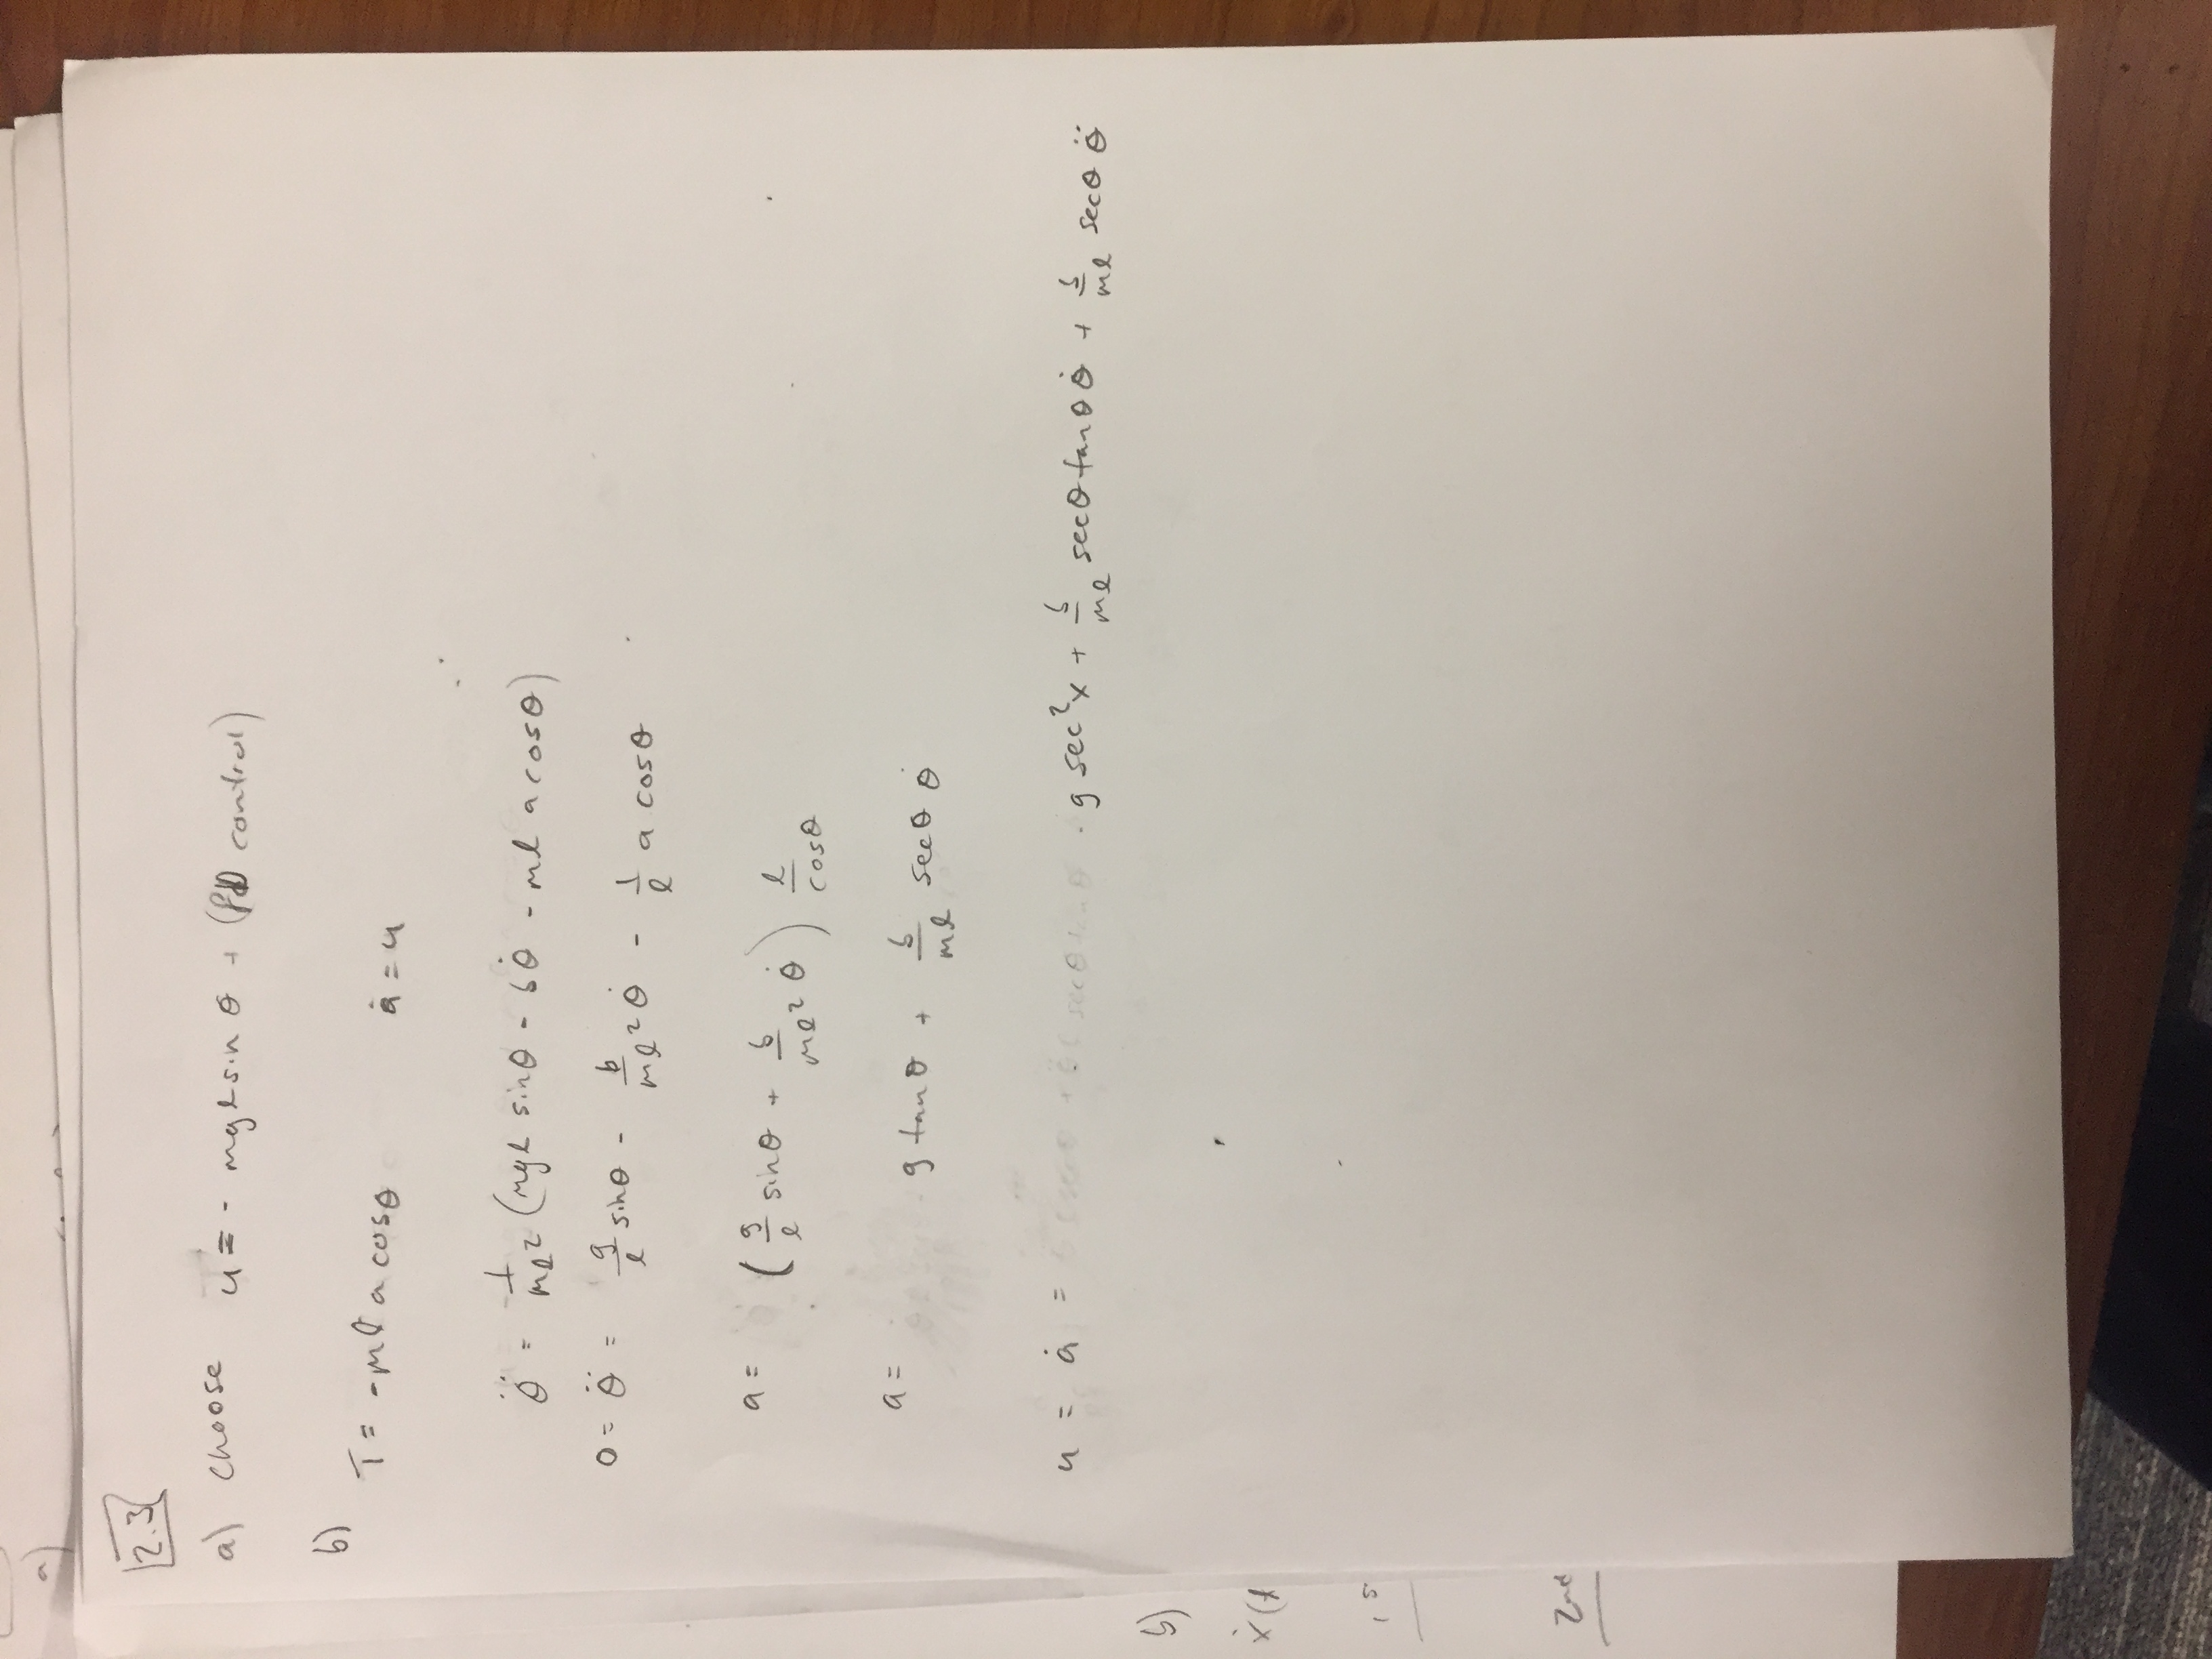 a)
2.3
a) choose u = - mgl sin θ + (PD control)
b)
T = -ml a cosθ ȧ = u
θ̈ = 1/ml² (mgl sinθ - bθ̇ - ml a cosθ)
0 = θ̈ = g/l sinθ - b/ml² θ̇ - 1/l a cosθ
a = (g/l sinθ + b/ml² θ̇) l/cosθ
a = g tanθ + b/ml secθ θ̇
u = ȧ = g sec²x + b/ml secθ tanθ θ̇ + b/ml secθ θ̈
b)
ẋ(t
2nd